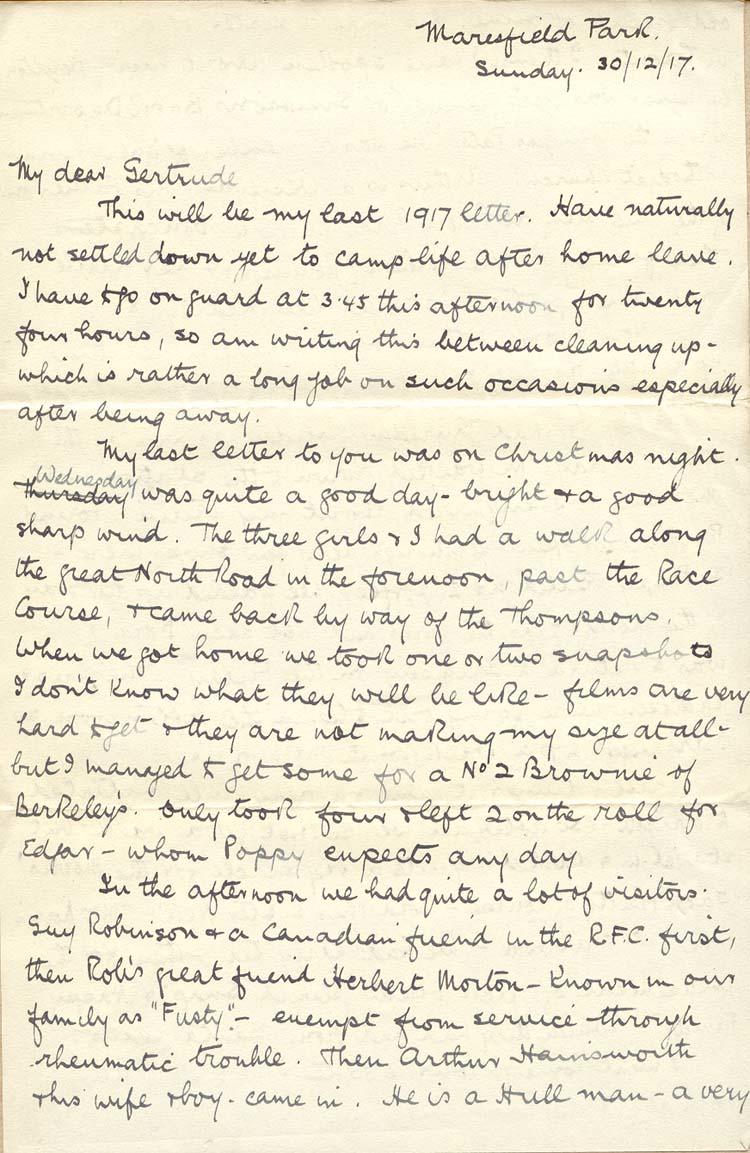 Maresfield Park.
Sunday. 30/12/17.
My dear Gertrude
This will be my last 1917 letter. Have naturally
not settled down yet to camp life after home leave.
I have to go on guard at 3.45 this afternoon for twenty
four hours, so am writing this between cleaning up -
which is rather a long job on such occasions especially
after being away.
My last letter to you was on Christmas night.
Wednesday
Thursday was quite a good day - bright & a good
sharp wind. The three girls & I had a walk along
the great North Road in the forenoon, past the Race
Course, & came back by way of the Thompsons.
When we got home we took one or two snapshots
I don't know what they will be like - films are very
hard to get & they are not making my size at all -
but I managed to get some for a No 2 Brownie of
Berkeley's. Only took four & left 2 on the roll for
Edgar - whom Poppy expects any day
In the afternoon we had quite a lot of visitors.
Guy Robinson & a Canadian friend in the R.F.C. first,
then Rob's great friend Herbert Morton - known in our
family as "Fusty" - exempt from service through
rheumatic trouble. Then Arthur Hainsworth
& his wife & boy - came in. He is a Hull man - a very